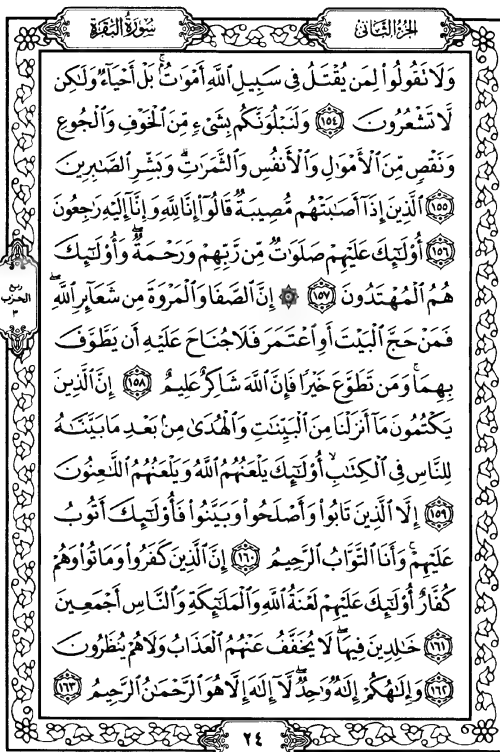 سُورَةُ البَقَرَةِ
الجُزْءُ الثَّانِي
وَلَا تَقُولُواْ لِمَن يُقْتَلُ فِى سَبِيلِ ٱللَّهِ أَمْوَٰتٌۢ ۚ بَلْ أَحْيَآءٌ وَلَٰكِن
لَّا تَشْعُرُونَ ١٥٤ وَلَنَبْلُوَنَّكُم بِشَىْءٍ مِّنَ ٱلْخَوْفِ وَٱلْجُوعِ
وَنَقْصٍ مِّنَ ٱلْأَمْوَٰلِ وَٱلْأَنفُسِ وَٱلثَّمَرَٰتِ ۗ وَبَشِّرِ ٱلصَّٰبِرِينَ
١٥٥ ٱلَّذِينَ إِذَآ أَصَٰبَتْهُم مُّصِيبَةٌ قَالُوٓاْ إِنَّا لِلَّهِ وَإِنَّآ إِلَيْهِ رَٰجِعُونَ
١٥٦ أُوْلَٰٓئِكَ عَلَيْهِمْ صَلَوَٰتٌ مِّن رَّبِّهِمْ وَرَحْمَةٌ ۖ وَأُوْلَٰٓئِكَ
هُمُ ٱلْمُهْتَدُونَ ١٥٧ ۞ إِنَّ ٱلصَّفَا وَٱلْمَرْوَةَ مِن شَعَآئِرِ ٱللَّهِ ۖ
فَمَنْ حَجَّ ٱلْبَيْتَ أَوِ ٱعْتَمَرَ فَلَا جُنَاحَ عَلَيْهِ أَن يَطَّوَّفَ
بِهِمَا ۚ وَمَن تَطَوَّعَ خَيْرًا فَإِنَّ ٱللَّهَ شَاكِرٌ عَلِيمٌ ١٥٨ إِنَّ ٱلَّذِينَ
يَكْتُمُونَ مَآ أَنزَلْنَا مِنَ ٱلْبَيِّنَٰتِ وَٱلْهُدَىٰ مِنۢ بَعْدِ مَا بَيَّنَّٰهُ
لِلنَّاسِ فِى ٱلْكِتَٰبِ ۙ أُوْلَٰٓئِكَ يَلْعَنُهُمُ ٱللَّهُ وَيَلْعَنُهُمُ ٱللَّٰعِنُونَ
١٥٩ إِلَّا ٱلَّذِينَ تَابُواْ وَأَصْلَحُواْ وَبَيَّنُواْ فَأُوْلَٰٓئِكَ أَتُوبُ
عَلَيْهِمْ ۚ وَأَنَا ٱلتَّوَّابُ ٱلرَّحِيمُ ١٦٠ إِنَّ ٱلَّذِينَ كَفَرُواْ وَمَاتُواْ وَهُمْ
كُفَّارٌ أُوْلَٰٓئِكَ عَلَيْهِمْ لَعْنَةُ ٱللَّهِ وَٱلْمَلَٰٓئِكَةِ وَٱلنَّاسِ أَجْمَعِينَ
١٦١ خَٰلِدِينَ فِيهَا ۖ لَا يُخَفَّفُ عَنْهُمُ ٱلْعَذَابُ وَلَا هُمْ يُنظَرُونَ
١٦٢ وَإِلَٰهُكُمْ إِلَٰهٌ وَٰحِدٌ ۖ لَّآ إِلَٰهَ إِلَّا هُوَ ٱلرَّحْمَٰنُ ٱلرَّحِيمُ ١٦٣
ربع
الحزب
٣
٢٤